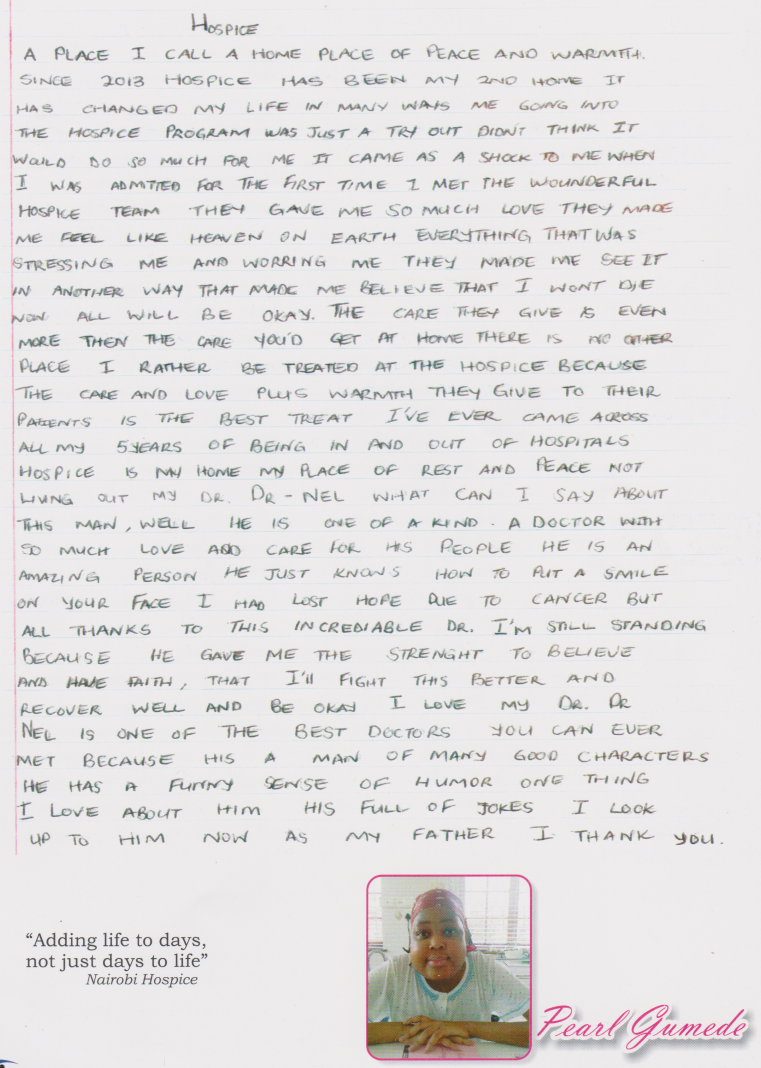 HOSPICE
A PLACE I CALL A HOME PLACE OF PEACE AND WARMTH.
SINCE 2013 HOSPICE HAS BEEN MY 2ND HOME IT
HAS CHANGED MY LIFE IN MANY WAYS ME GOING INTO
THE HOSPICE PROGRAM WAS JUST A TRY OUT DIDN'T THINK IT
WOULD DO SO MUCH FOR ME IT CAME AS A SHOCK TO ME WHEN
I WAS ADMITTED FOR THE FIRST TIME I MET THE WOUNDERFUL
HOSPICE TEAM THEY GAVE ME SO MUCH LOVE THEY MADE
ME FEEL LIKE HEAVEN ON EARTH EVERYTHING THAT WAS
STRESSING ME AND WORRING ME THEY MADE ME SEE IT
IN ANOTHER WAY THAT MADE ME BELIEVE THAT I WONT DIE
NOW ALL WILL BE OKAY. THE CARE THEY GIVE IS EVEN
MORE THEN THE CARE YOU'D GET AT HOME THERE IS NO OTHER
PLACE I RATHER BE TREATED AT THE HOSPICE BECAUSE
THE CARE AND LOVE PLUS WARMTH THEY GIVE TO THEIR
PATIENTS IS THE BEST TREAT I'VE EVER CAME ACROSS
ALL MY 5YEARS OF BEING IN AND OUT OF HOSPITALS
HOSPICE IS MY HOME MY PLACE OF REST AND PEACE NOT
LIVING OUT MY DR. DR-NEL WHAT CAN I SAY ABOUT
THIS MAN, WELL HE IS ONE OF A KIND. A DOCTOR WITH
SO MUCH LOVE AND CARE FOR HIS PEOPLE HE IS AN
AMAZING PERSON HE JUST KNOWS HOW TO PUT A SMILE
ON YOUR FACE I HAD LOST HOPE DUE TO CANCER BUT
ALL THANKS TO THIS INCREDIABLE DR. I'M STILL STANDING
BECAUSE HE GAVE ME THE STRENGHT TO BELIEVE
AND HAVE FAITH, THAT I'll FIGHT THIS BETTER AND
RECOVER WELL AND BE OKAY I LOVE MY DR. DR
NEL IS ONE OF THE BEST DOCTORS YOU CAN EVER
MET BECAUSE HIS A MAN OF MANY GOOD CHARACTERS
HE HAS A FUNNY SENSE OF HUMOR ONE THING
I LOVE ABOUT HIM HIS FULL OF JOKES I LOOK
UP TO HIM NOW AS MY FATHER I THANK YOU.
"Adding life to days,
not just days to life"
Nairobi Hospice
Pearl Gumede